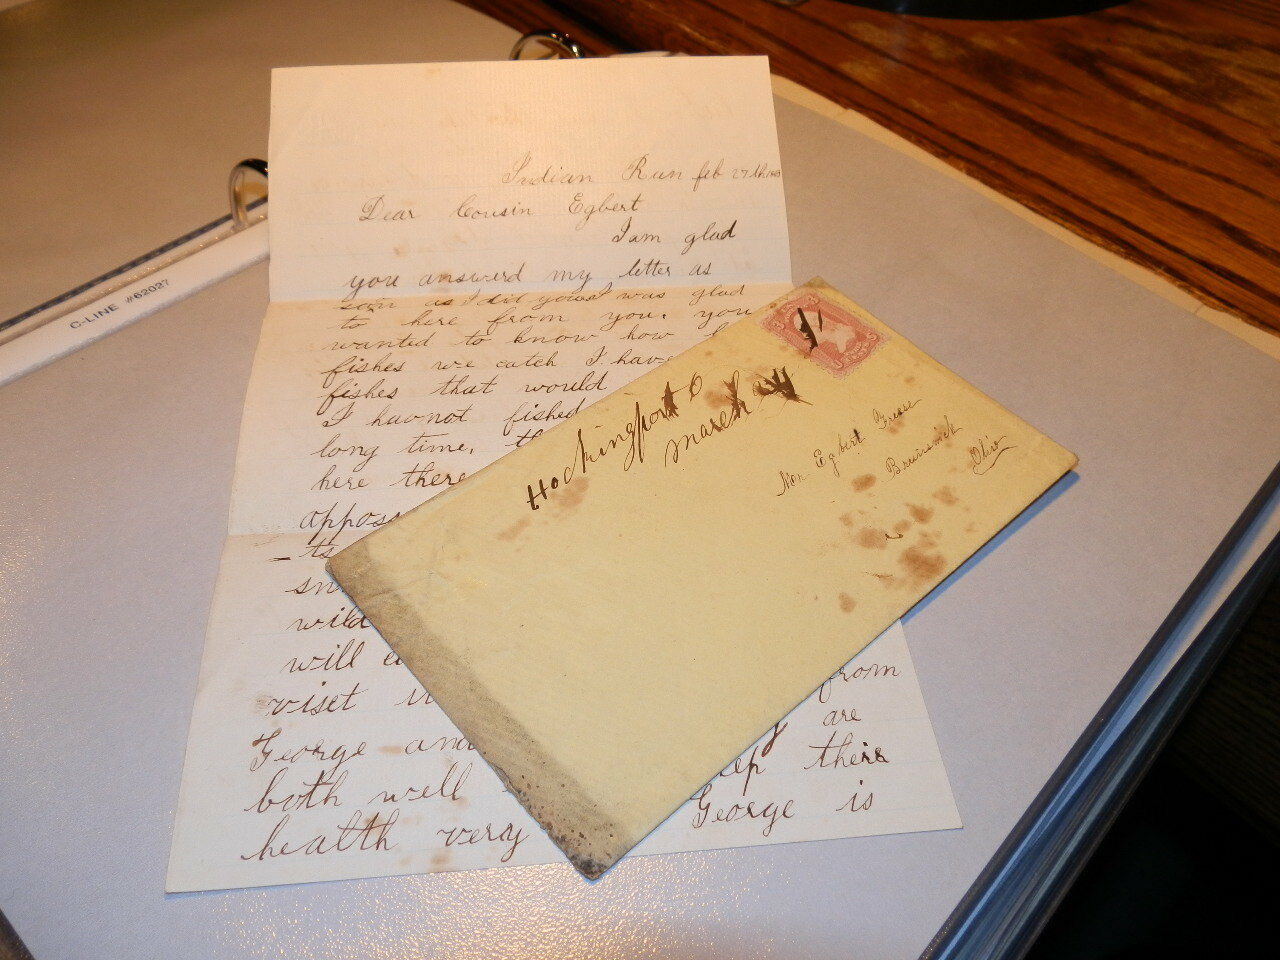 Indian Run feb 27th
Dear Cousin Egbert
I am glad
you answerd my letter as
soon as I did yours I was glad
to here from you. you
wanted to know how
fishes we catch I have
fishes that would
I hav not fished
long time.
here there
wild
will
viset
from
George and
are
both well
there
health very
George is
Hockingport O
March
Egbert
Brunswick
Ohio
3 CENTS
C-LINE #62027